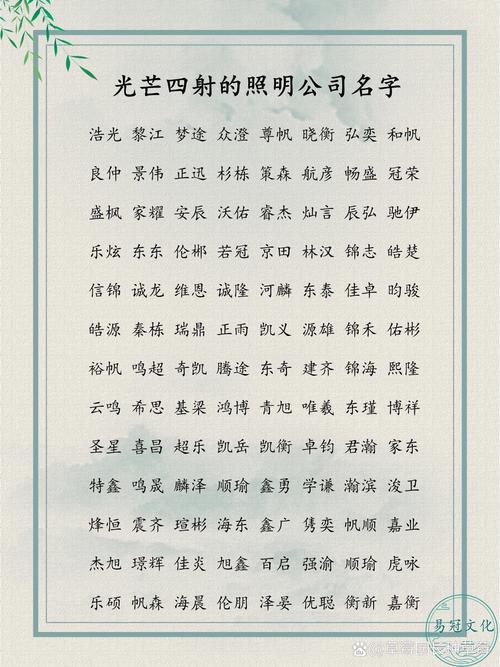 光芒四射的照明公司名字
浩光 黎江 梦途 众澄 尊帆 晓衡 弘奕 和帆
良仲 景伟 正迅 杉栋 策森 航彦 畅盛 冠荣
盛枫 家耀 安辰 沃佑 睿杰 灿言 辰弘 驰伊
乐炫 东东 伦郴 若冠 京田 林汉 锦志 皓楚
信锦 诚龙 维恩 诚隆 河麟 东泰 佳卓 昀骏
皓源 秦栋 瑞鼎 正雨 凯义 源雄 锦禾 佑彬
裕帆 鸣超 奇凯 腾途 东奇 建齐 锦海 熙隆
云鸣 希思 基梁 鸿博 青旭 唯羲 东瑾 博祥
圣星 喜昌 超乐 凯岳 凯衡 卓钧 君瀚 家东
特鑫 鸣晟 麟泽 顺瑜 鑫勇 学谦 瀚滨 浚卫
烽恒 震齐 瑄彬 海东 鑫广 隽奕 帆顺 嘉业
杰旭 璟辉 佳炎 旭鑫 百启 强渝 顺瑜 虎咏
乐硕 帆森 海晨 伦朋 泽晏 优聪 衡新 嘉衡
易冠文化